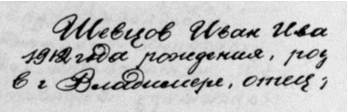 Шевцов Иван Ива
1912 года рождения, род
в г Владимере, отец